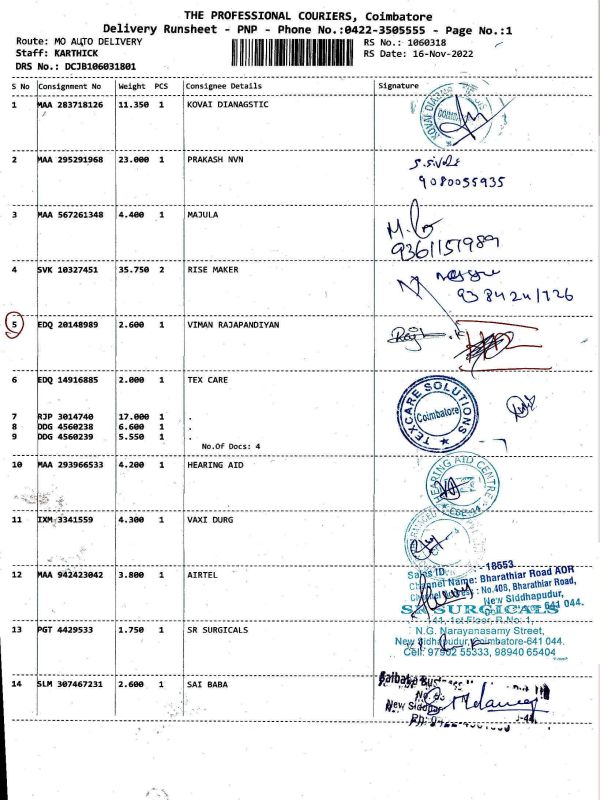 THE PROFESSIONAL COURIERS, Coimbatore
Delivery Runsheet - PNP - Phone No.:0422-3505555 - Page No.:1
Route: MO AUTO DELIVERY
RS No.: 1060318
Staff: KARTHICK
RS Date: 16-Nov-2022
DRS No.: DCJB106031801
S No Consignment No Weight PCS Consignee Details Signature
1 MAA 283718126 11.350 1 KOVAI DIANAGSTIC
2 MAA 295291968 23.000 1 PRAKASH NVN
9080055935
3 MAA 567261348 4.400 1 MAJULA
9361151989
4 SVK 10327451 35.750 2 RISE MAKER
5 EDQ 20148989 2.600 1 VIMAN RAJAPANDIYAN
6 EDQ 14916885 2.000 1 TEX CARE
TEXCARE SOLUTIONS
Coimbatore
7 RJP 3014740 17.000 1 .
8 DDG 4560238 6.600 1 .
9 DDG 4560239 5.550 1 .
No.Of Docs: 4
10 MAA 293966533 4.200 1 HEARING AID
HEARING AID CENTRE
11 IXM 3341559 4.300 1 VAXI DURG
12 MAA 942423042 3.800 1 AIRTEL
Sales ID : - 18653
Channel Name: Bharathiar Road AOR
: No.408, Bharathiar Road,
New Siddhapudur,
641 044.
SR SURGICALS
141, 1st Floor, R.No: 1,
13 PGT 4429533 1.750 1 SR SURGICALS
N.G. Narayanasamy Street,
New Sidhapudur, Coimbatore-641 044.
Cell: 97902 55333, 98940 65404
14 SLM 307467231 2.600 1 SAI BABA
Saibaba
New